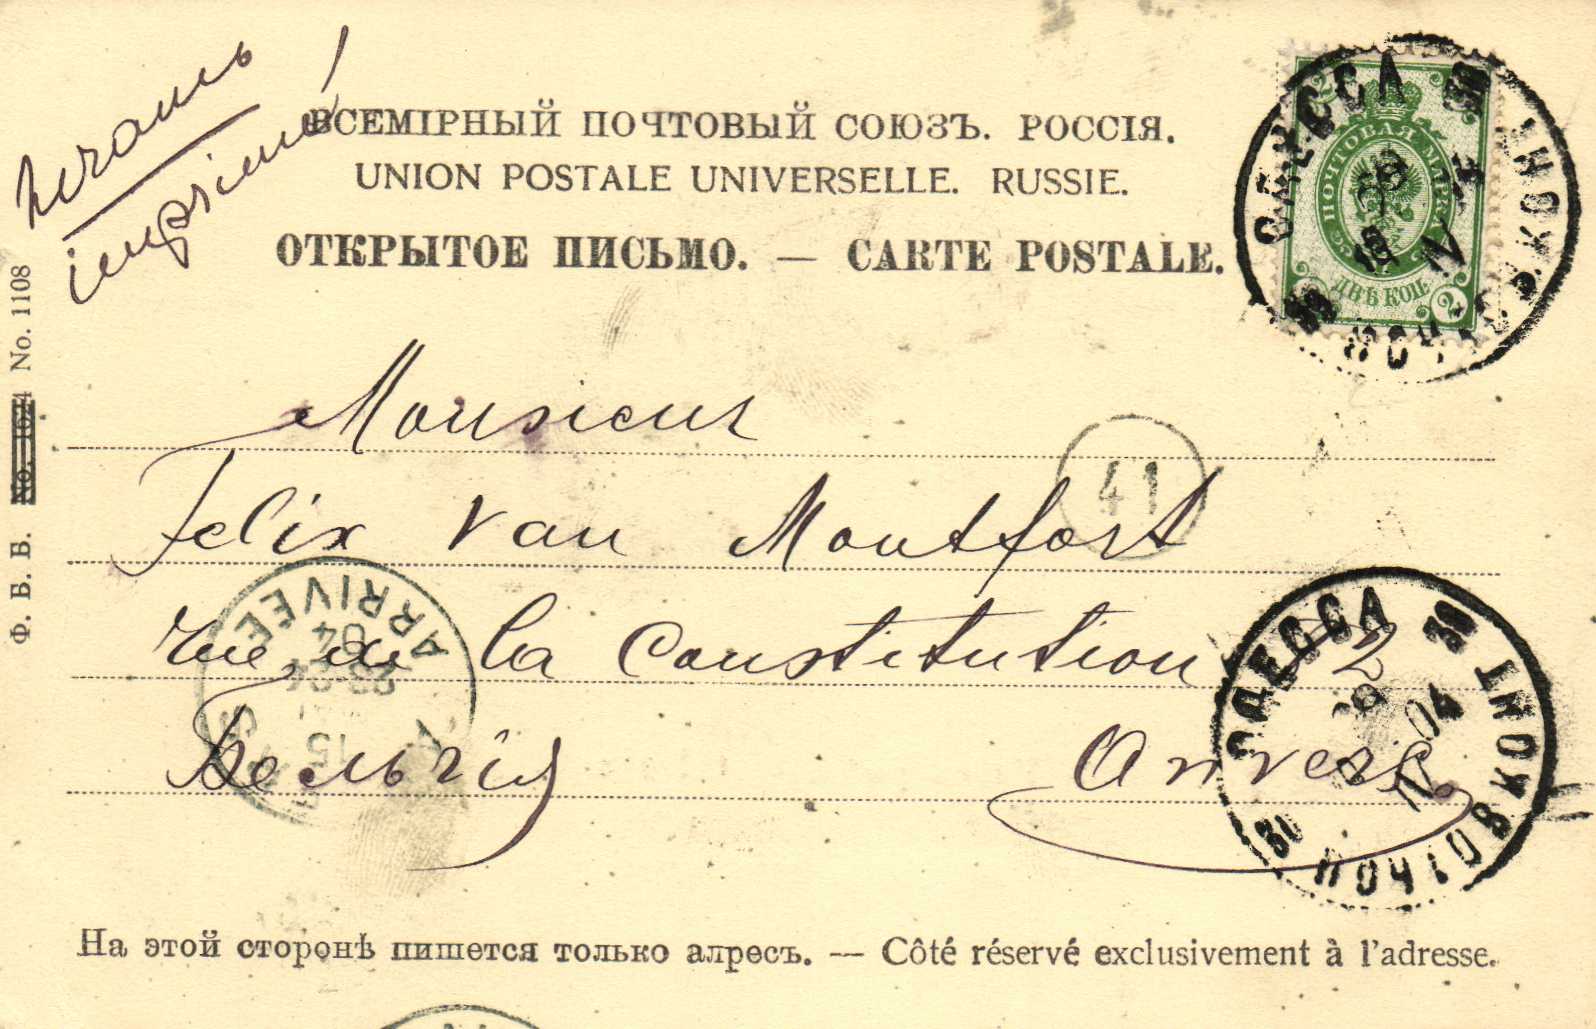 печать
imprimé
ВСЕМІРНЫЙ ПОЧТОВЫЙ СОЮЗЪ. РОССІЯ.
UNION POSTALE UNIVERSELLE. RUSSIE.
ОТКРЫТОЕ ПИСЬМО. — CARTE POSTALE.
ПОЧТОВАЯ МАРКА
ДВѢ КОП.
2
ОДЕССА
Ф. В. В. No. 1108
Monsieur
Felix van Montfort
41
rue de la Constitution 72
Бельгія Anvers
ARRIVEE
15
04
ОДЕССА
04
На этой сторонѣ пишется только адресъ. — Côté réservé exclusivement à l'adresse.